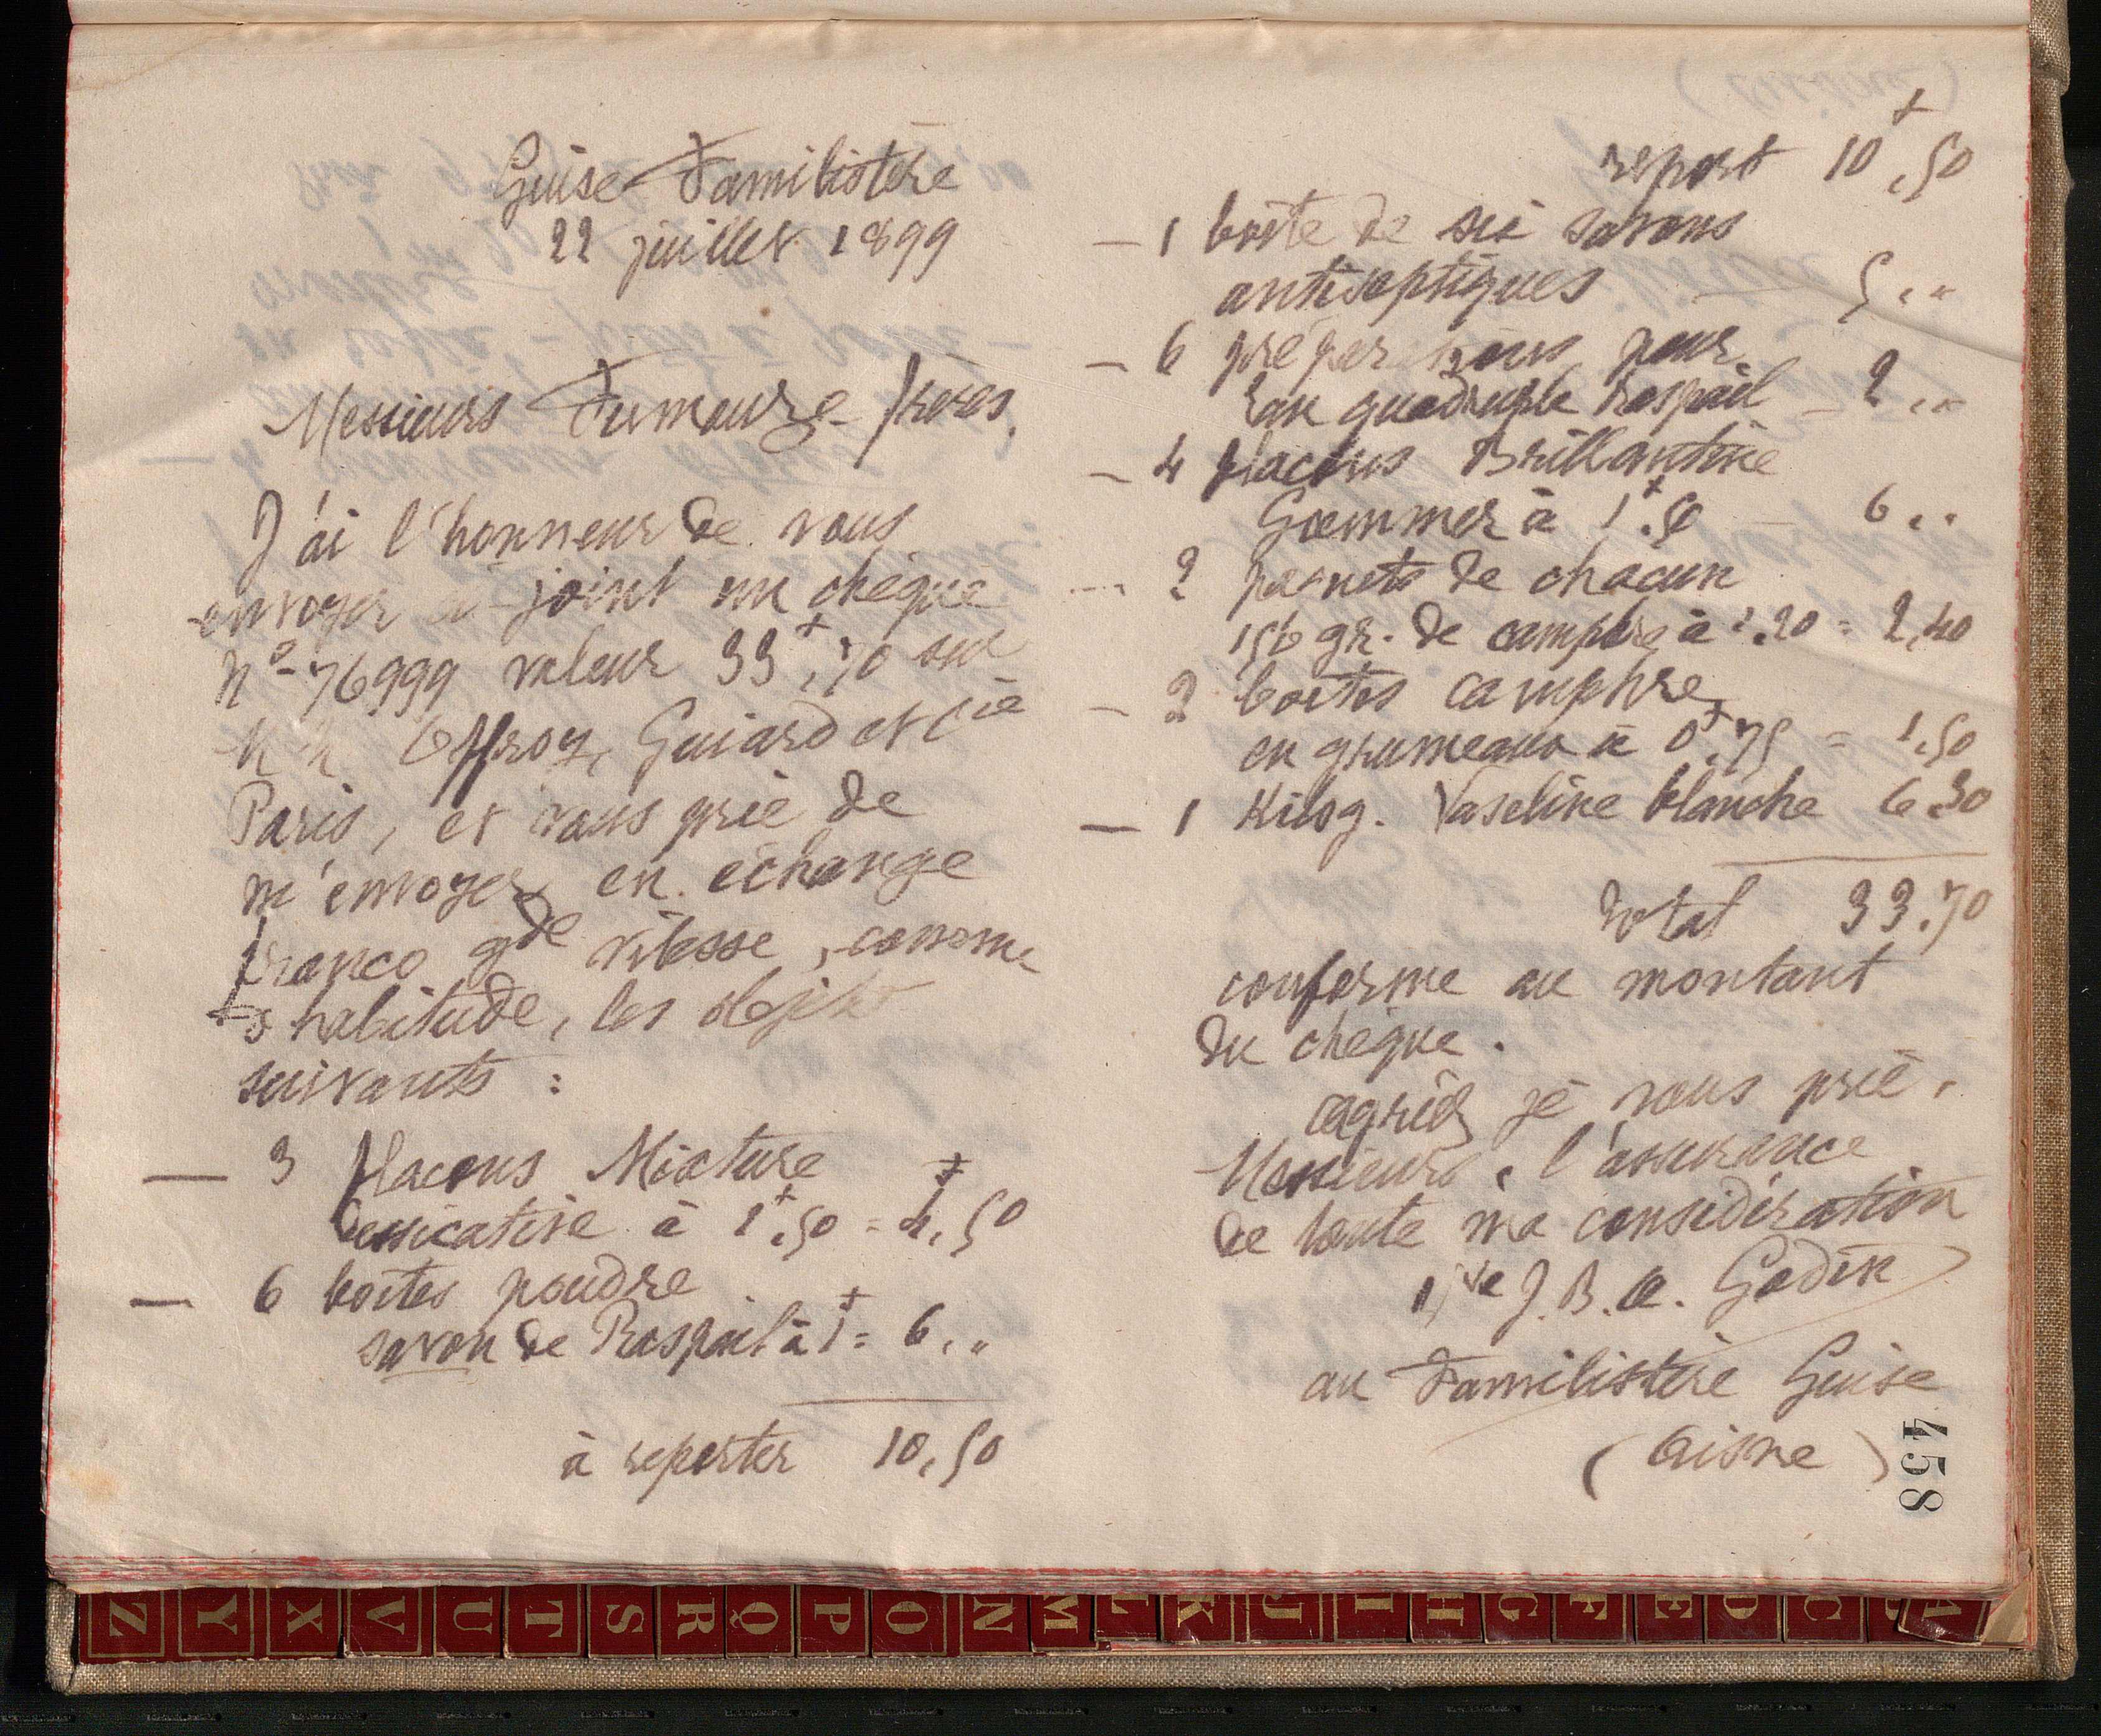 Guise Familistère
22 juillet 1899
Messieurs Fumouze frères,
J'ai l'honneur de vous
envoyer ci-joint un chèque
No 76999 valeur 33f,70 sur
Offroy, Guiard et Cie
Paris, et vous prie de
m'envoyer en échange
franco gde vitesse, comme
d'habitude, les objets
suivants :
— 3 flacons Mixture
dessicative à 1f,50 = 4f,50
— 6 boîtes poudre
savon de Raspail à 1f = 6,"
à reporter 10,50
report 10f,50
— 1 boîte de six savons
antiseptiques — 5,"
— 6 préparations pour
Eau quadruple Raspail — 2,"
— 4 flacons Brillantine
à 1f.50 — 6,"
— 2 paquets de chacun
gr. de camphre à 1.20 = 2,40
— 2 boîtes camphre
en grumeaux à 0f,75 = 1,50
— 1 Kilog. Vaseline blanche 6.30
Total 33.70
conforme au montant
du chèque.
Agréez je vous prie,
Messieurs, l'assurance
de toute ma considération
Ve J.B.A. Godin
au Familistère Guise
(Aisne)
458
Z Y X V U T S R Q P O N M L K J I H G F E D C B A